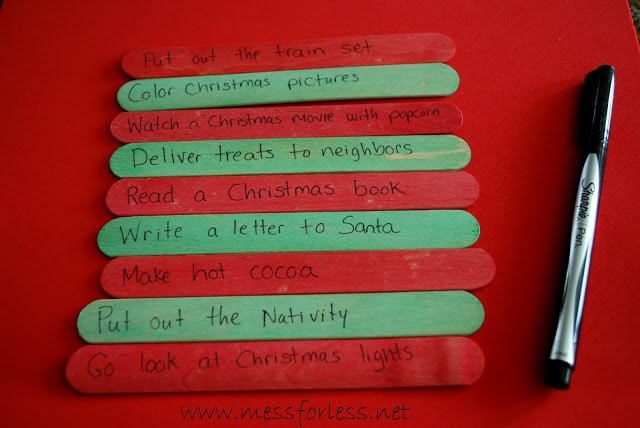 Put out the train set
Color Christmas pictures
Watch a Christmas movie with popcorn
Deliver treats to neighbors
Read a Christmas book
Write a letter to Santa
Make hot cocoa
Put out the Nativity
Go look at Christmas lights
Sharpie Pen
www.messforless.net